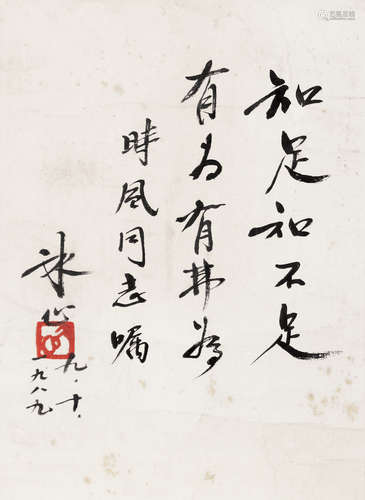 知足知不足
有为有弗为
时风同志嘱
冰心
九·十·
一九八九